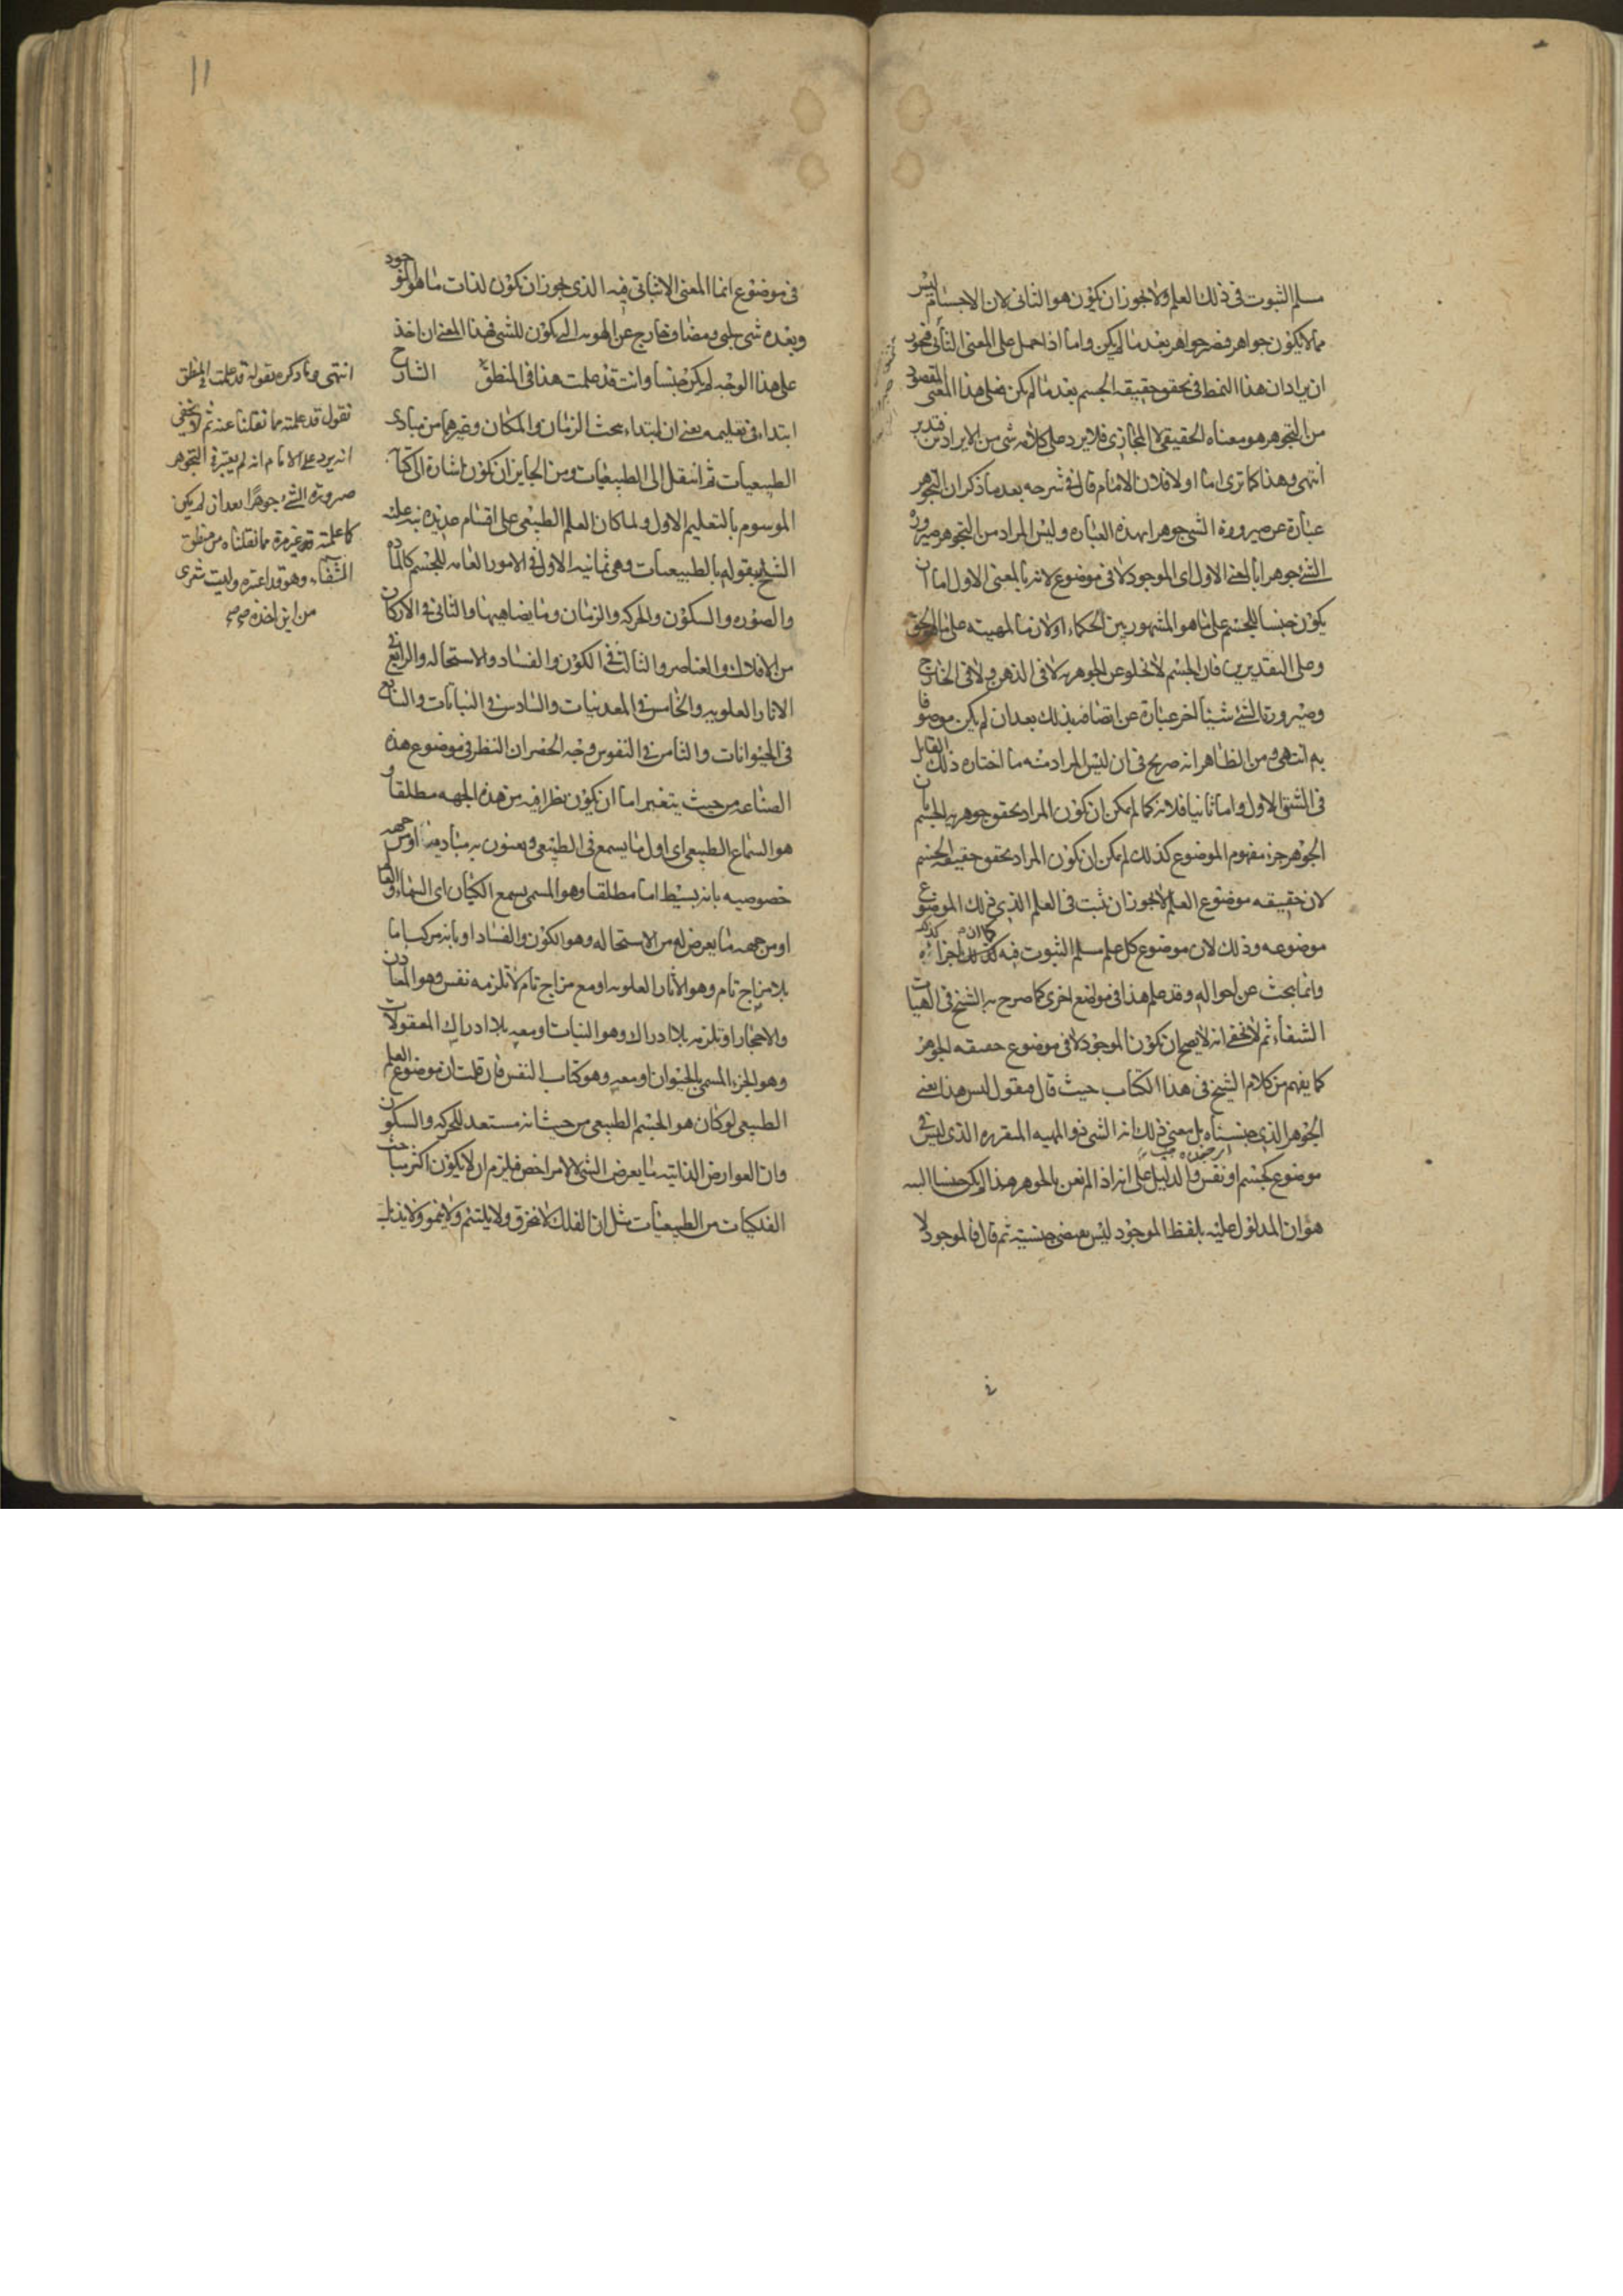 مسلم الثبوت فى ذلك العلم ولا يجوز ان يكون هو الثانى لان الاجسام ليس
مما لا يكون جواهر فيصير جواهر بعد ما لم يكن واما اذا حمل على المعنى الثانى فيجوز
ان يراد ان هذا النمط فى تحقق حقيقة الجسم بعد ما لم يكن فعلى هذا المعنى المقصود
من التجوهر هو معناه الحقيقى لا المجازى فلا يرد على كلامه شى من الايرادين فتدبر
انتهى وهذا كما ترى اما اولا فلان الامام قال فى شرحه بعد ما ذكر ان التجوهر
عبارة عن صيرورة الشى جوهرا بهذه العبارة وليس المراد من التجوهر صيرورة
الشئ جوهرا بالمعنى الاول اى الموجود لا فى موضوع لانه بالمعنى الاول اما ان
يكون جنسا للجسم على ما هو المشهور بين الحكماء او لازما لمهيته على ما هو الحق
وعلى التقديرين فان الجسم لا يخلو عن الجوهرية لا فى الذهن ولا فى الخارج
وصيرورة الشئ شيئا اخر عبارة عن اتصافه بذلك بعد ان لم يكن موصوفا
به انتهى ومن الظاهر انه صريح فى ان ليس المراد منه ما اختاره ذلك القايل
فى الشق الاول واما ثانيا فلانه كما لم يكن ان يكون المراد تحقق جوهرية الجسم بان
الجوهر جزء مفهوم الموضوع كذلك لم يمكن ان يكون المراد تحقق حقيقة الجسم
لان حقيقة موضوع العلم لا يجوز ان تثبت فى العلم الذى ذلك الموضوع
موضوعه وذلك لان موضوع كل علم مسلم الثبوت فيه كما ان كذلك اجزائه
وانما يبحث عن احواله وقد علم هذا فى مواضع اخرى كما صرح به الشيخ فى الهيات
الشفاء ثم لا يخفى انه لا يصح ان يكون الموجود لا فى موضوع حقيقة الجوهر
كما يفهم من كلام الشيخ فى هذا الكتاب حيث قال فنقول ليس هذا يعنى
الجوهر الذى جنسناه بل معنى ذلك انه الشى ذو المهية المتقررة الذى ليس فى
موضوع كجسم او نفس والدليل على انه اذا لم نعن بالجوهر هذا لم يكن جنسا البته
هو ان المدلول عليه بلفظ الموجود ليس يقتضى جنسيته ثم قال فالموجود لا
١١
فى موضوع انما المعنى الاثباتى فيه الذى يجوز ان يكون لذات ما هو الموجود
وبعده شى سلبى ومضاف خارج عن الهوية التى يكون للشى فهذا المعنى ان اخذ
على هذا الوجه لم يكن جنسا وانت قد علمت هذا فى المنطق الشارح
ابتداء فى تعليمه يعنى ان ابتداء بحث الزمان والمكان وغيرهما من مبادى
الطبيعيات ثم انتقل الى الطبيعيات ومن الجايز ان يكون اشارة الى كتابه
الموسوم بالتعليم الاول ولما كان العلم الطبيعى على اقسام عديدة نبه عليه
الشيخ بقوله بالطبيعيات وهى ثمانية الاول فى الامور العامة للجسم كالمادة
والصورة والسكون والحركة والزمان وما يضاهيها والثانى فى الاركان
من الافلاك والعناصر والثالث فى الكون والفساد والاستحالة والرابع فى
الاثار العلوية والخامس فى المعدنيات والسادس فى النباتات والسابع
فى الحيوانات والثامن فى النفوس وجه الحصر ان النظر فى موضوع هذه
الصناعة من حيث يتغير اما ان يكون نظرا فيه من هذه الجهة مطلقا و
هو السماع الطبيعى اى اول ما يسمع فى الطبيعى ويعنون به مباديه او من جهة
خصوصية بانه بسيط اما مطلقا وهو المسمى بسمع الكيان اى السماء والعالم
او من جهة ما يعرض له من الاستحالة وهو الكون والفساد او بانه مركب اما
بلا مزاج تام وهو الاثار العلوية او مع مزاج تام لا تلزمه نفس وهو المعادن
والاحجار او تلزمه بلا ادراك وهو النبات او معه بلا ادراك المعقولات
وهو الجزء المسمى بالحيوان او معه وهو كتاب النفس فان قلت ان موضوع العلم
الطبيعى لو كان هو الجسم الطبيعى من حيث انه مستعد للحركة والسكون
وان العوارض الذاتية ما يعرض الشى لا لامر اخص فيلزم ان لا يكون اكثر مباحث
الفلكيات من الطبيعيات مثل ان الفلك لا ينخرق ولا يلتئم ولا ينمو ولا يذبل
انتهى وما ذكره بقوله قد علمت فى المنطق
نقول قد علمته مما نقلنا عنه ثم لا يخفى
انه يرد على الامام انه لم يعتبر فى التجوهر
صيرورة الشئ جوهرا بعد ان لم يكن
كما علمته غير مرة مما نقلناه من منطق
الشفاء وهو قد اعتبره وليت شعرى
من اين اخذه